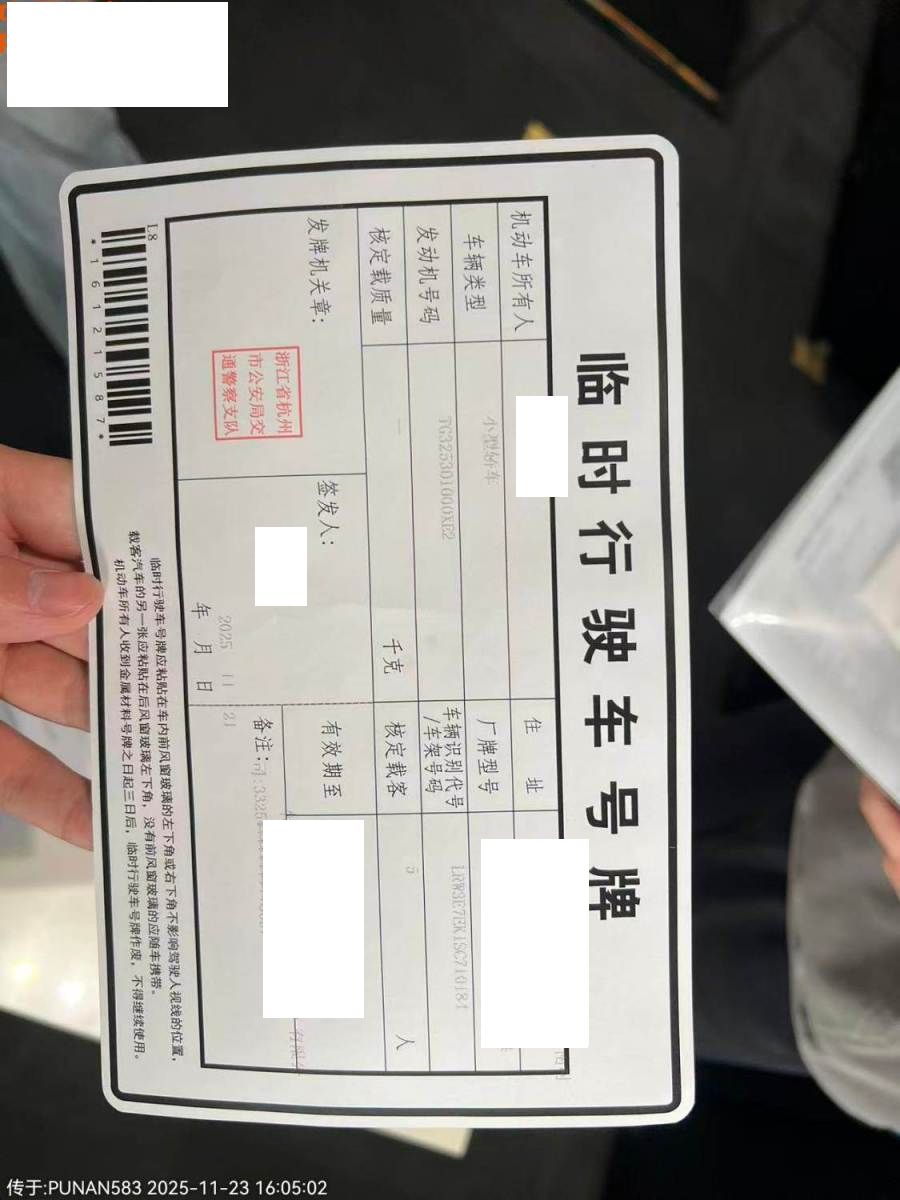 临时行驶车号牌
机动车所有人
住 址
车辆类型 小型轿车
厂牌型号
发动机号码 TG325301000XE2
车辆识别代号
/车架号码 LRW3E7EK1SC710184
核定载质量 — 千克
核定载客 5 人
发牌机关章:
浙江省杭州
市公安局交
通警察支队
签发人:
2025 11 21
年 月 日
有效期至
备注:
有限
临时行驶车号牌应粘贴在车内前风窗玻璃的左下角或右下角不影响驾驶人视线的位置,
载客汽车的另一张应粘贴在后风窗玻璃左下角, 没有前风窗玻璃的应随车携带。
机动车所有人收到金属材料号牌之日起三日后, 临时行驶车号牌作废, 不得继续使用。
L8
*16121587*
传于:PUNAN583 2025-11-23 16:05:02